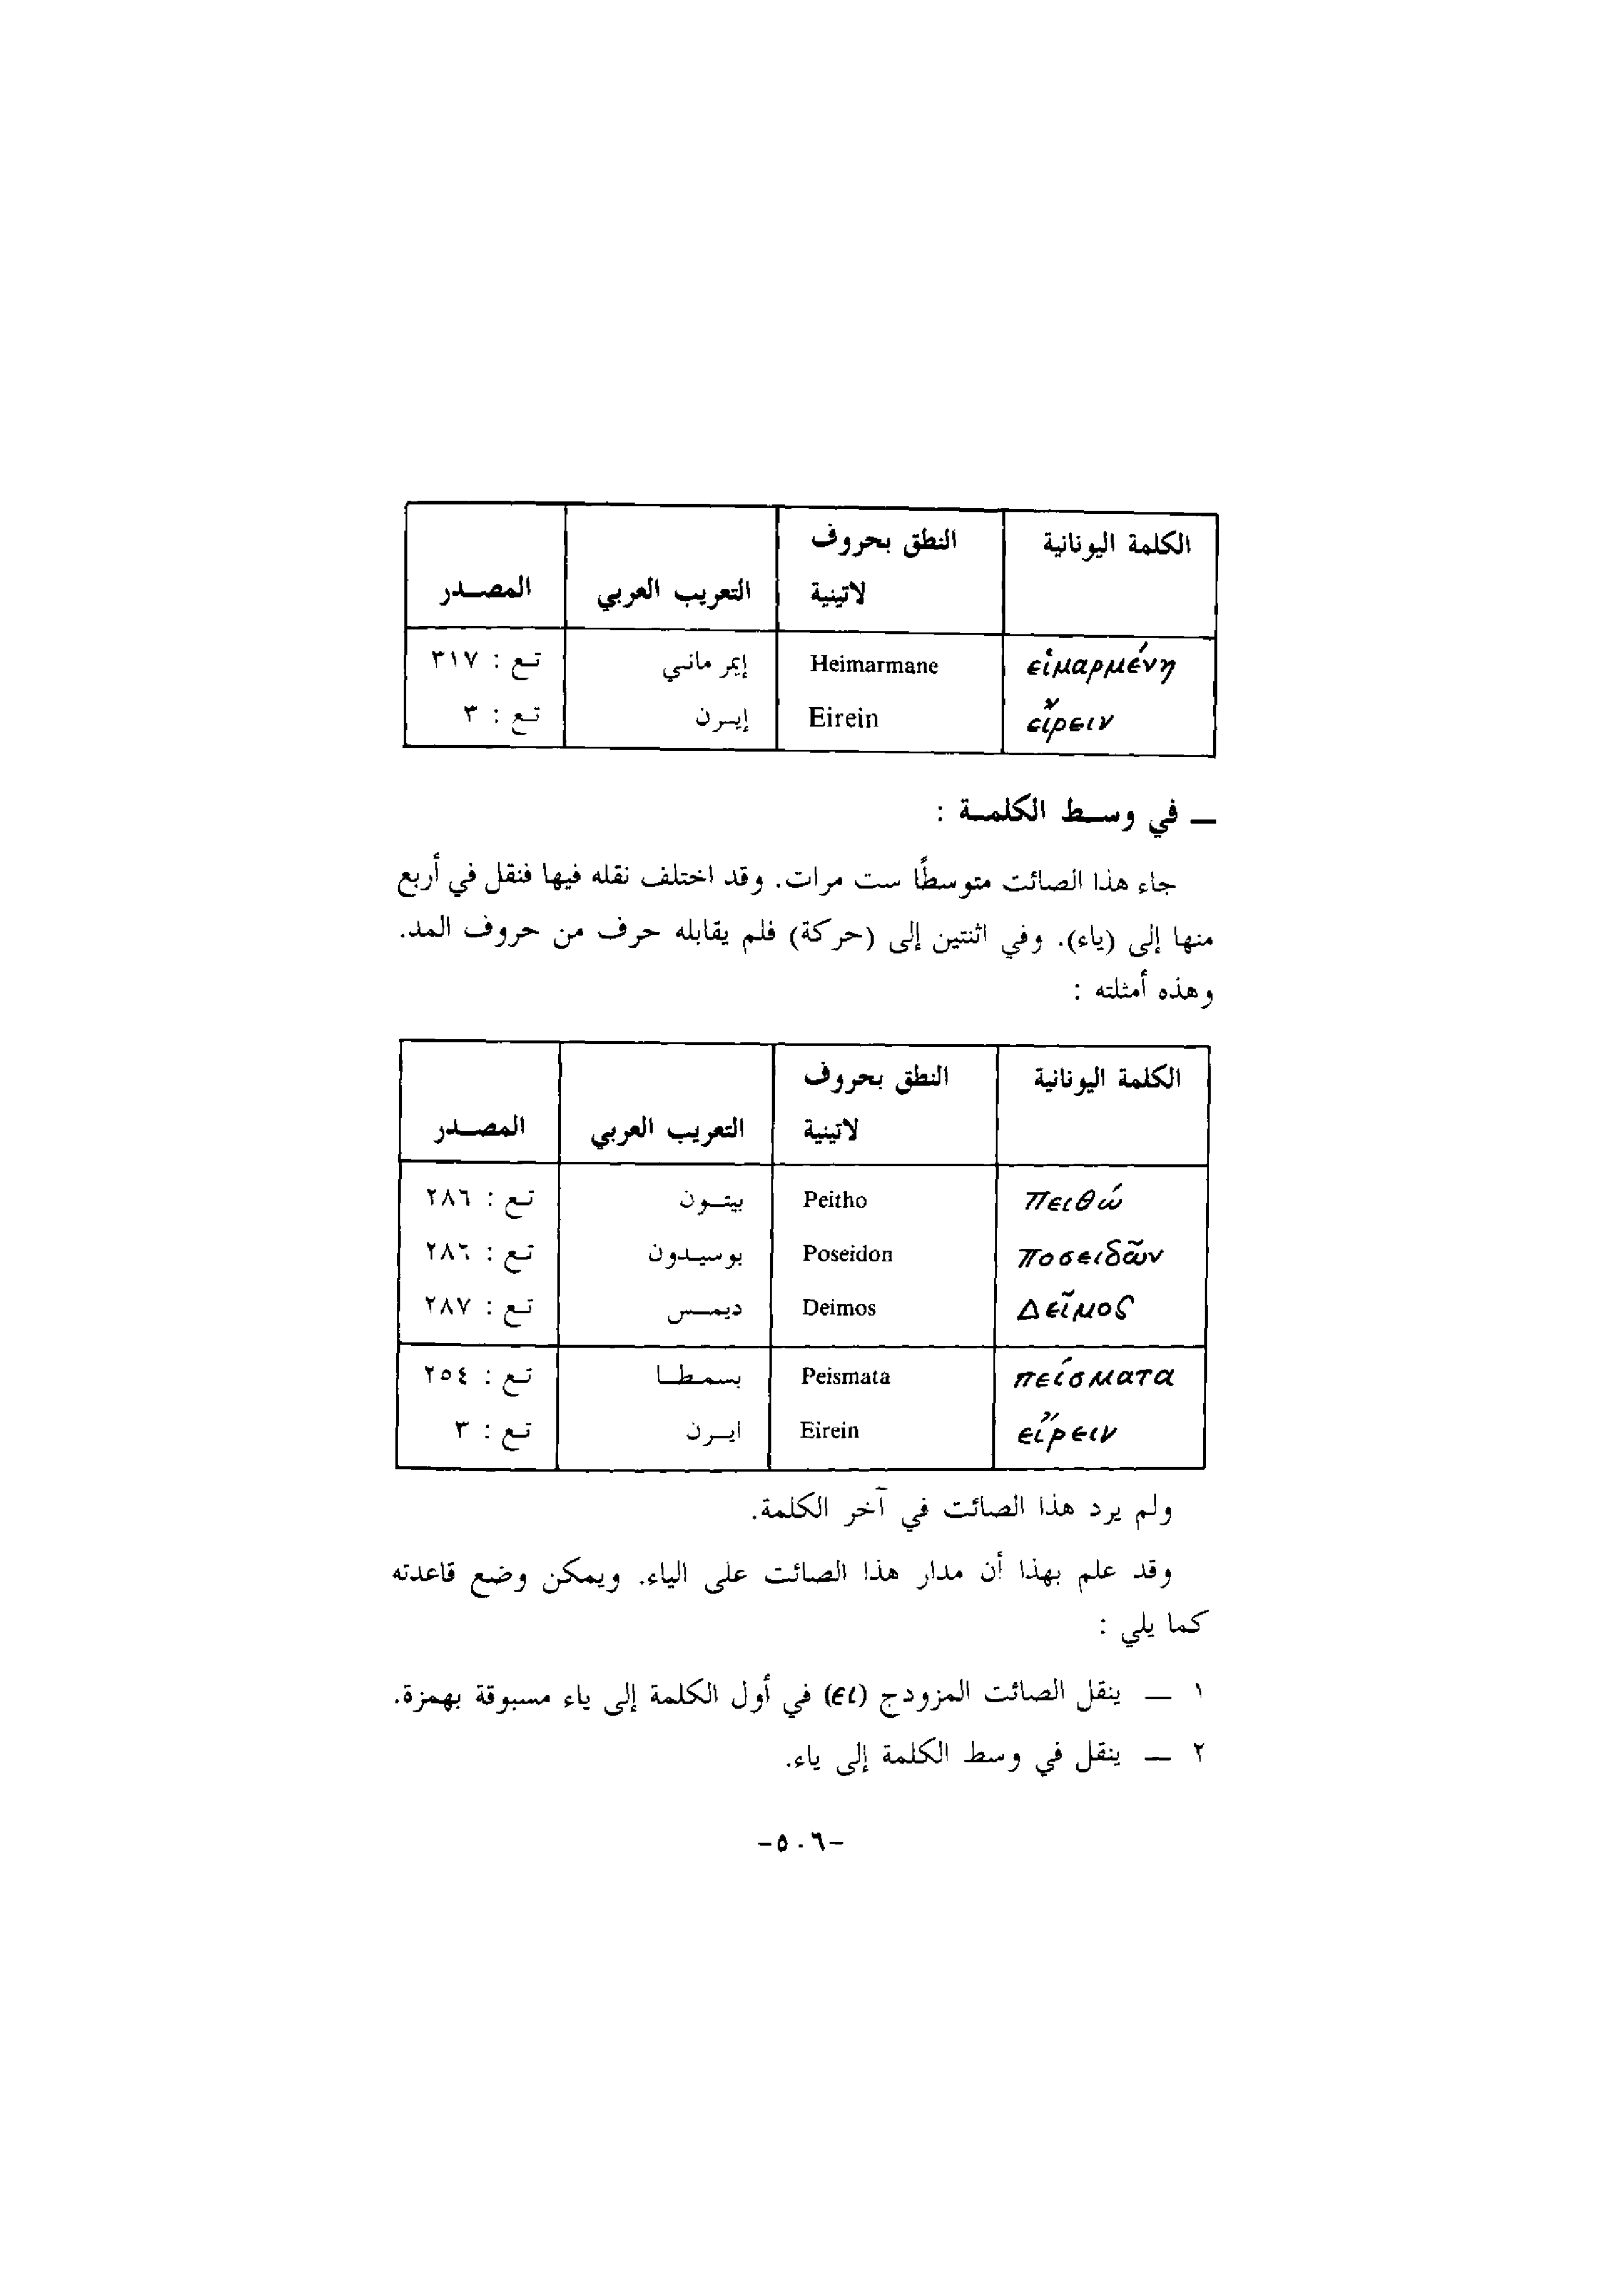 الكلمة اليونانية النطق بحروف لاتينية التعريب العربي المصدر
εἱμαρμένη Heimarmane إيمر ماني تع : ٣١٧
εἴρειν Eirein إيرن تع : ٣
— في وسط الكلمة :
جاء هذا الصائت متوسطًا ست مرات. وقد اختلف نقله فيها فنقل في أربع
منها إلى (ياء). وفي اثنتين إلى (حركة) فلم يقابله حرف من حروف المد.
وهذه أمثلته :
الكلمة اليونانية النطق بحروف لاتينية التعريب العربي المصدر
πειθώ Peitho بيتون تع : ٢٨٦
ποσειδῶν Poseidon بوسيدون تع : ٢٨٦
Δεῖμος Deimos ديمس تع : ٢٨٧
πείσματα Peismata بسمطا تع : ٢٥٤
εἴρειν Eirein ايرن تع : ٣
ولم يرد هذا الصائت في آخر الكلمة.
وقد علم بهذا أن مدار هذا الصائت على الياء. ويمكن وضع قاعدته
كما يلي :
١ — ينقل الصائت المزودج (ει) في أول الكلمة إلى ياء مسبوقة بهمزة.
٢ — ينقل في وسط الكلمة إلى ياء.
-٥٠٦-